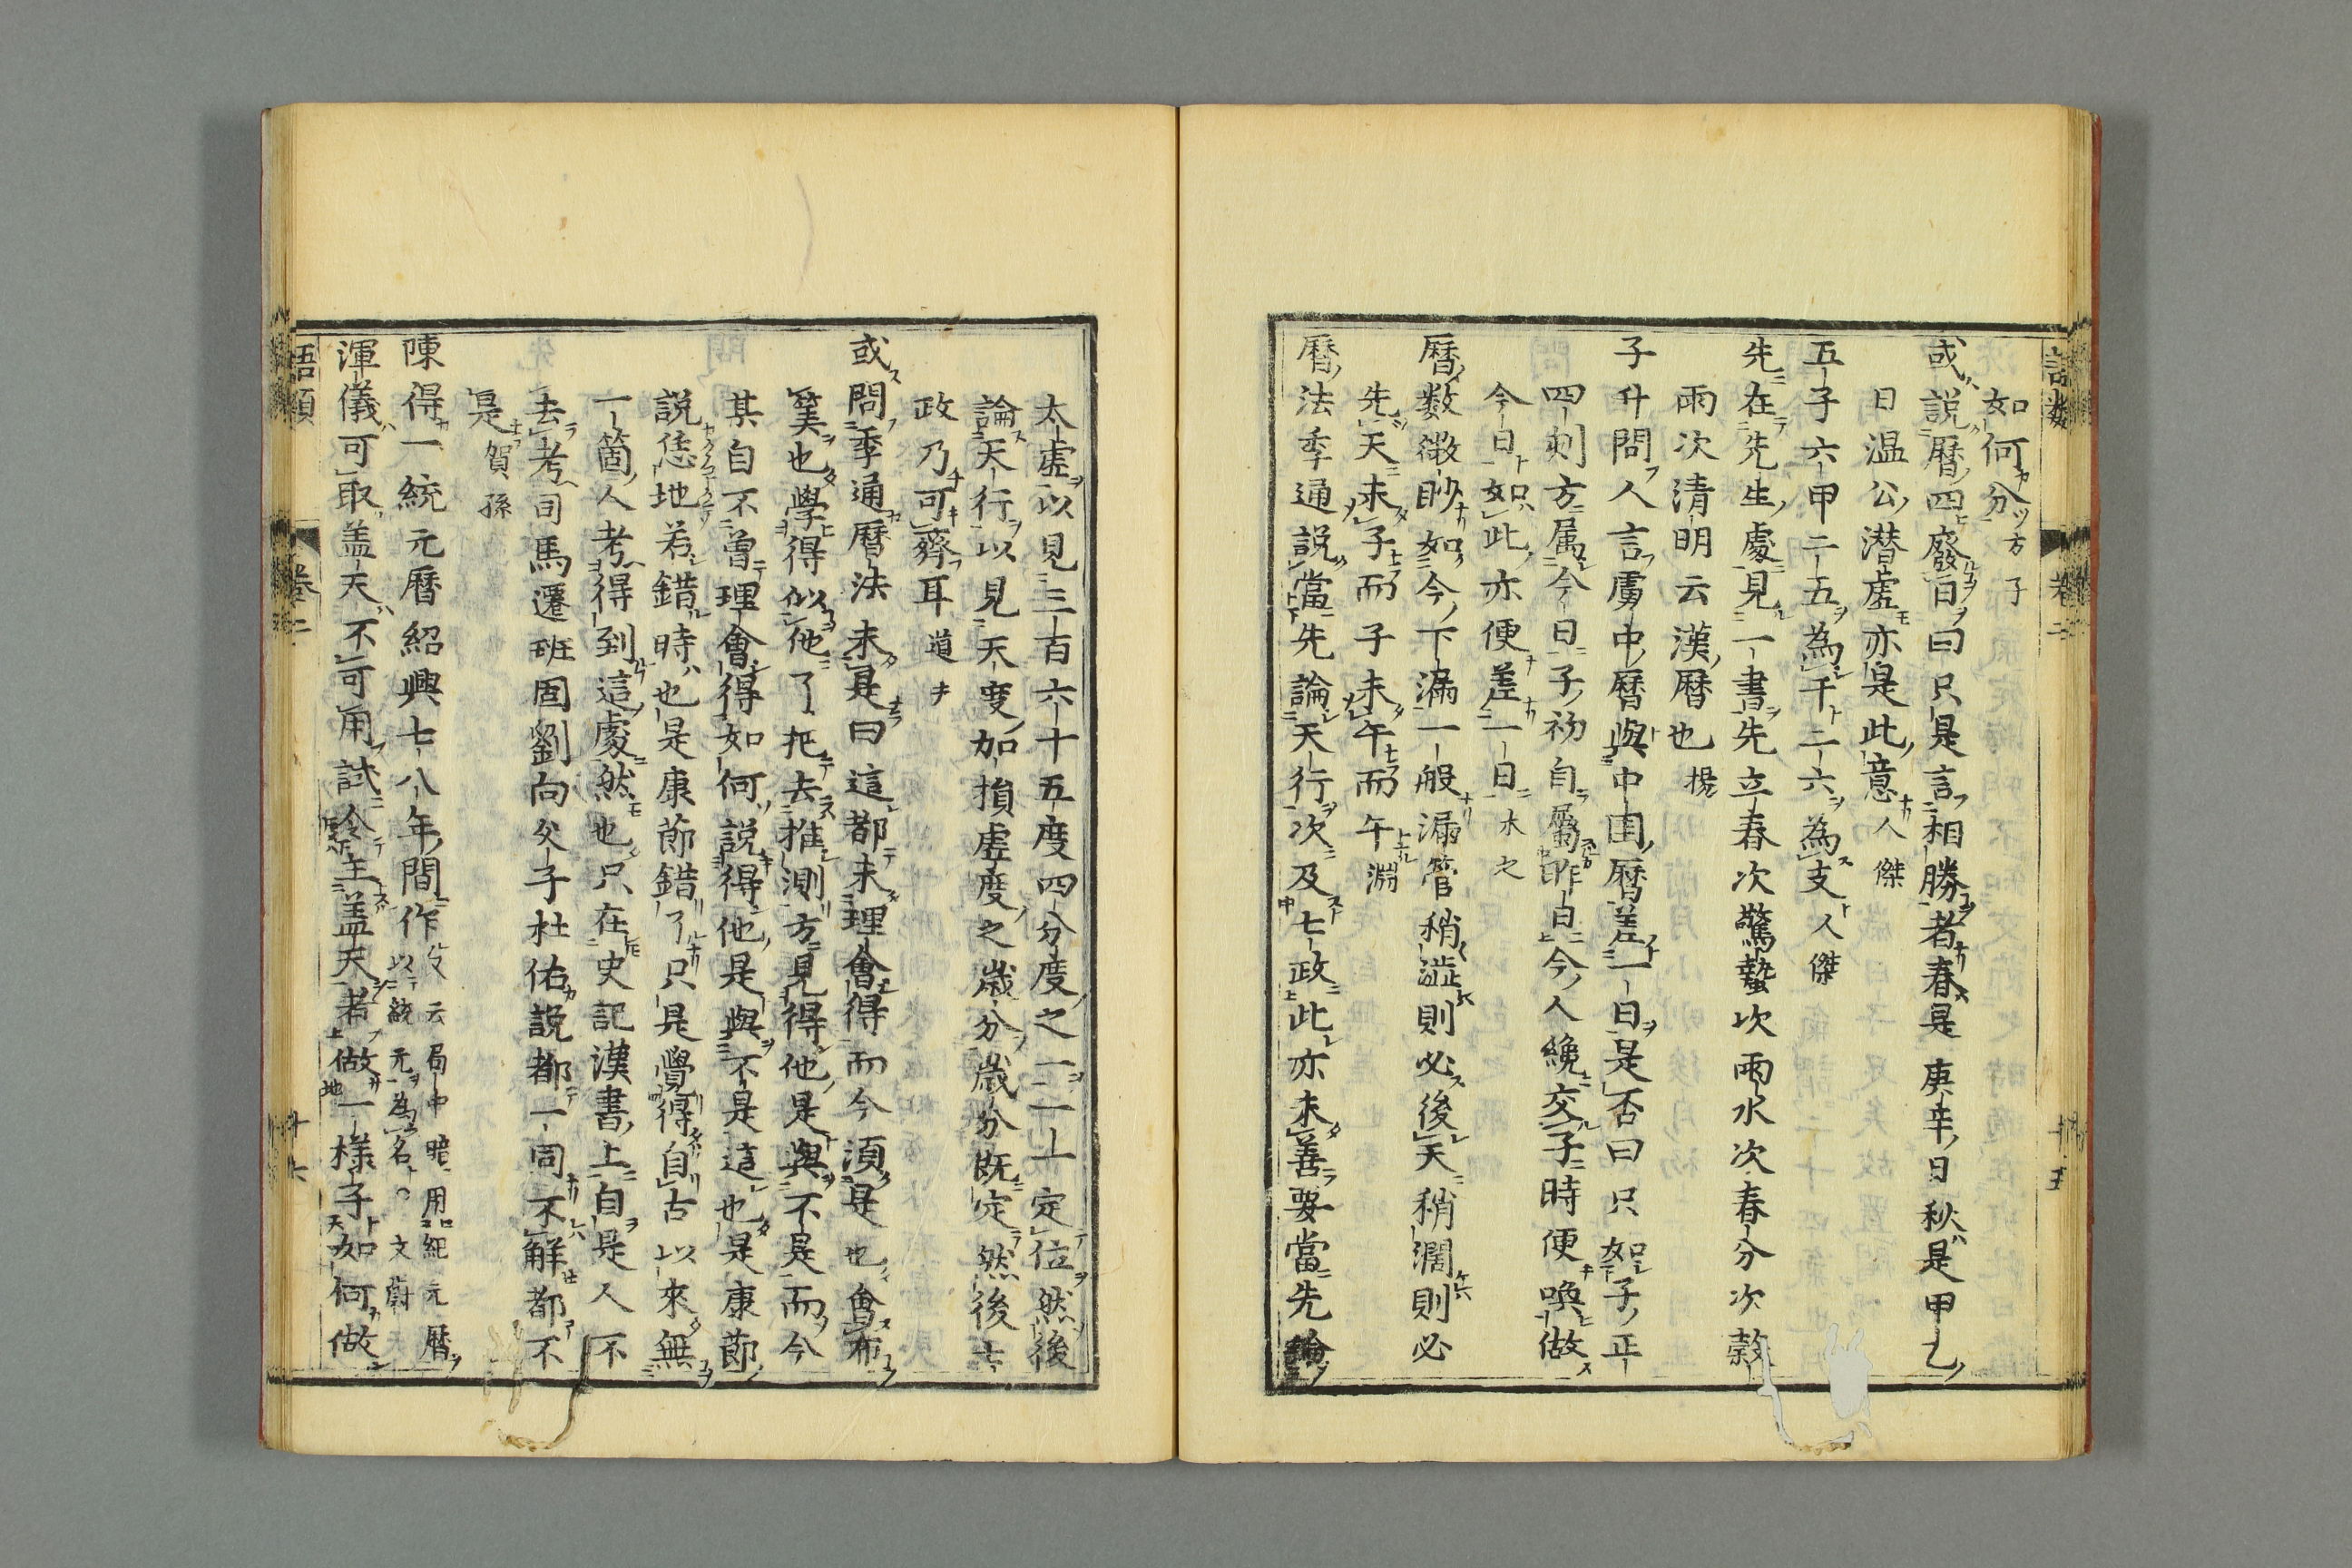 語類 卷二 十五
如何分 方子
或說曆四廢日曰只是言相勝者春是庚辛日秋是甲乙
日温公潜虚亦是此意 人傑
五子六甲二五為干二六為支 人傑
先在先生處見一書先立春次驚蟄次雨水次春分次穀
雨次清明云漢曆也 揚
子升問人言虜中曆與中国曆差一日是否曰只如子正
四刻方属今日子初自屬昨日今人纔交子時便喚做
今日如此亦便差一日 木之
曆数微眇如今下漏一般漏管稍澁則必後天稍濶則必
先天未子而子未午而午 淵
曆法季通說當先論天行次及七政此亦未善要當先論
太虚以見三百六十五度四分度之一一一定位然後
論天行以見天度加損虚度之歲分歲分既定然後七
政乃可齊耳 道夫
或問季通曆法未是曰這都未理會得而今須是也會布
筭也學得似他了把去推測方見得他是與不是而今
某自不曾理會得如何說得他是與不是這也是康節
說恁地若錯時也是康節錯了只是覺得自古以來無
一箇人考得到這處然也只在史記漢書上自是人不
去考司馬遷班固劉向父子杜佑說都一同不解都不
是 賀孫
陳得一統元曆紹興七八年間作 又云局中暗用紀元曆
以統元為名 ○文蔚
渾儀可取盖天不可用試令主盖天者做一樣子如何做
語類 卷二 十六